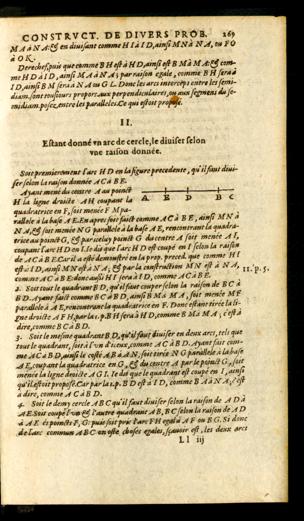 CONSTRVCT. DE DIVERS PROB. 269
MA à NA: & en diuisant comme HI à ID, ainsi MN à NA, ou FO
à OK.
Derechef, puis que comme BH est à HD, ainsi est BM à MA: & com-
me HD à ID, ainsi MA à NA; par raison egale, comme BH sera à
ID, ainsi BM sera à NA ou GL. Donc les arcs interceptez entre les
diam. sont tousiours propor. aux perpendiculaires, ou aux segmens du se-
midiam. posez entre les paralleles. Ce qui estoit proposé.
II.
Estant donné vn arc de cercle, le diuiser selon
vne raison donnée.
Soit premierement l'arc HD en la figure precedente, qu'il faut diui-
ser selon la raison donnée AC à BE.
Ayant mené du centre A au poinct
H la ligne droite AH coupant la
quadratrice en F, soit menée FM pa-
A E D B C
rallele à la base AE. En apres soit faict comme AC à BE, ainsi MN à
NA, & soit menée NG parallele à la base AE, rencontrant la quadra-
trice au poinct G, & par celuy poinct G du centre A soit menée AI,
coupant l'arc HD en I. Ie dis que l'arc HD est coupé en I selon la raison
de AC à BE. Car il a esté demonstré en la prop. preced. que comme HI
est à ID, ainsi MN est à NA; & par la construction MN est à NA,
comme AC à BE: donc aussi HI sera à ID, comme AC à BE.
11. p. 5.
2. Soit tout le quadrant BD, qu'il faut couper selon la raison de BC à
BD. Ayant faict comme BC à BD, ainsi BM à MA, soit menée MF
parallele à AE, rencontrant la quadratrice en F. Donc estant tirée la li-
gne droite AFH, par la 1. p. BH sera à HD, comme BM à MA; c'est à
dire, comme BC à BD.
3. Soit le mesme quadrant BD, qu'il faut diuiser en deux arcs, tels que
tout le quadrant, soit à l'vn d'iceux, comme AC à BD. Ayant fait com-
me AC à BD, ainsi le costé AB à AN, soit tirée NG parallele à la base
AE, coupant la quadratrice en G, & du centre A par le poinct G, soit
menée la ligne droite AGI. Ie dis que le quadrant est coupé en I, ainsi
qu'il estoit proposé. Car par la 1. p. BD est à ID, comme BA à NA; c'est
à dire, comme AC à BD.
4. Soit le demy cercle ABC qu'il faut diuiser selon la raison de AD à
AE. Soit coupé l'vn & l'autre quadrant AB, BC selon la raison de AD
à AE és poincts F, G: puis soit pris l'arc FH egal à AF ou BG. Si donc
de l'arc commun ABC on oste choses egales, sçauoir est, les deux arcs
Ll iij